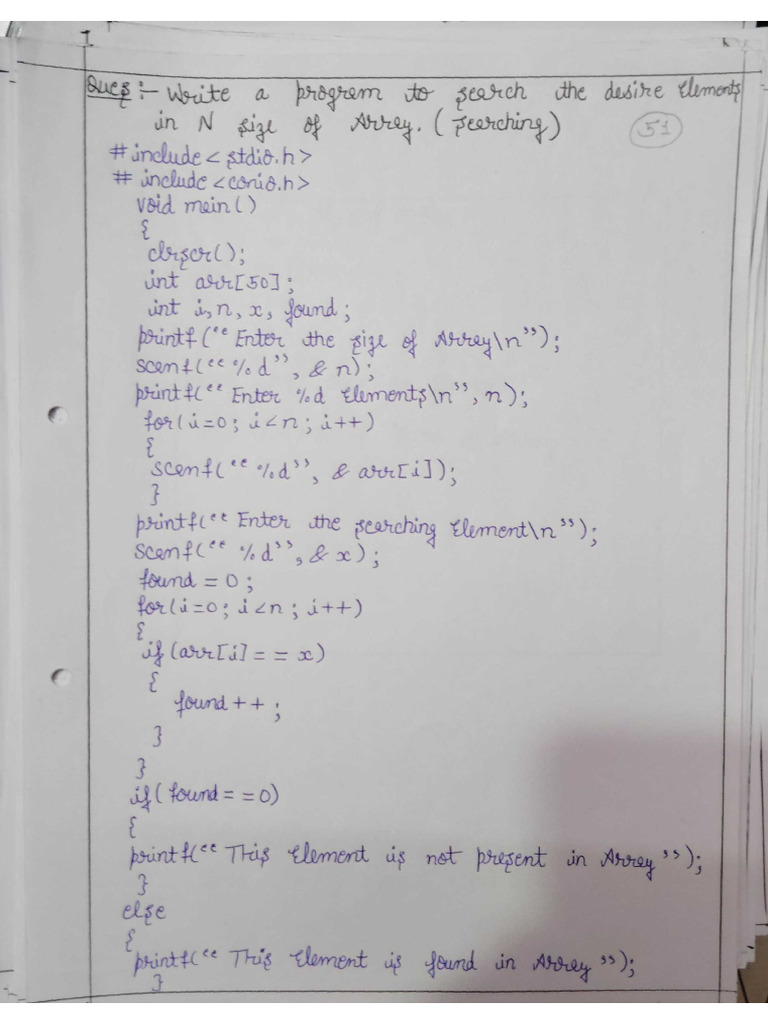 Ques :- Write a program to search the desire Elements
in N size of Array. (Searching) 51
#include< stdio.h>
# include <conio.h>
void main()
{
clrscr();
int arr[50];
int i,n, x, found;
printf (“ Enter the size of Array\n”);
scanf(“ %d”, & n);
printf(“ Enter %d Elements\n”, n);
for(i=0; i<n; i++)
{
scanf(“ %d”, & arr[i]);
}
printf(“ Enter the searching Element\n”);
scanf(“ %d”, & x);
found = 0;
for(i=0; i<n; i++)
{
if (arr[i] = = x)
{
found + + ;
}
}
if( found = = 0)
{
printf(“ This Element is not present in Array ”);
}
else
{
printf(“ This Element is found in Array ”);
}